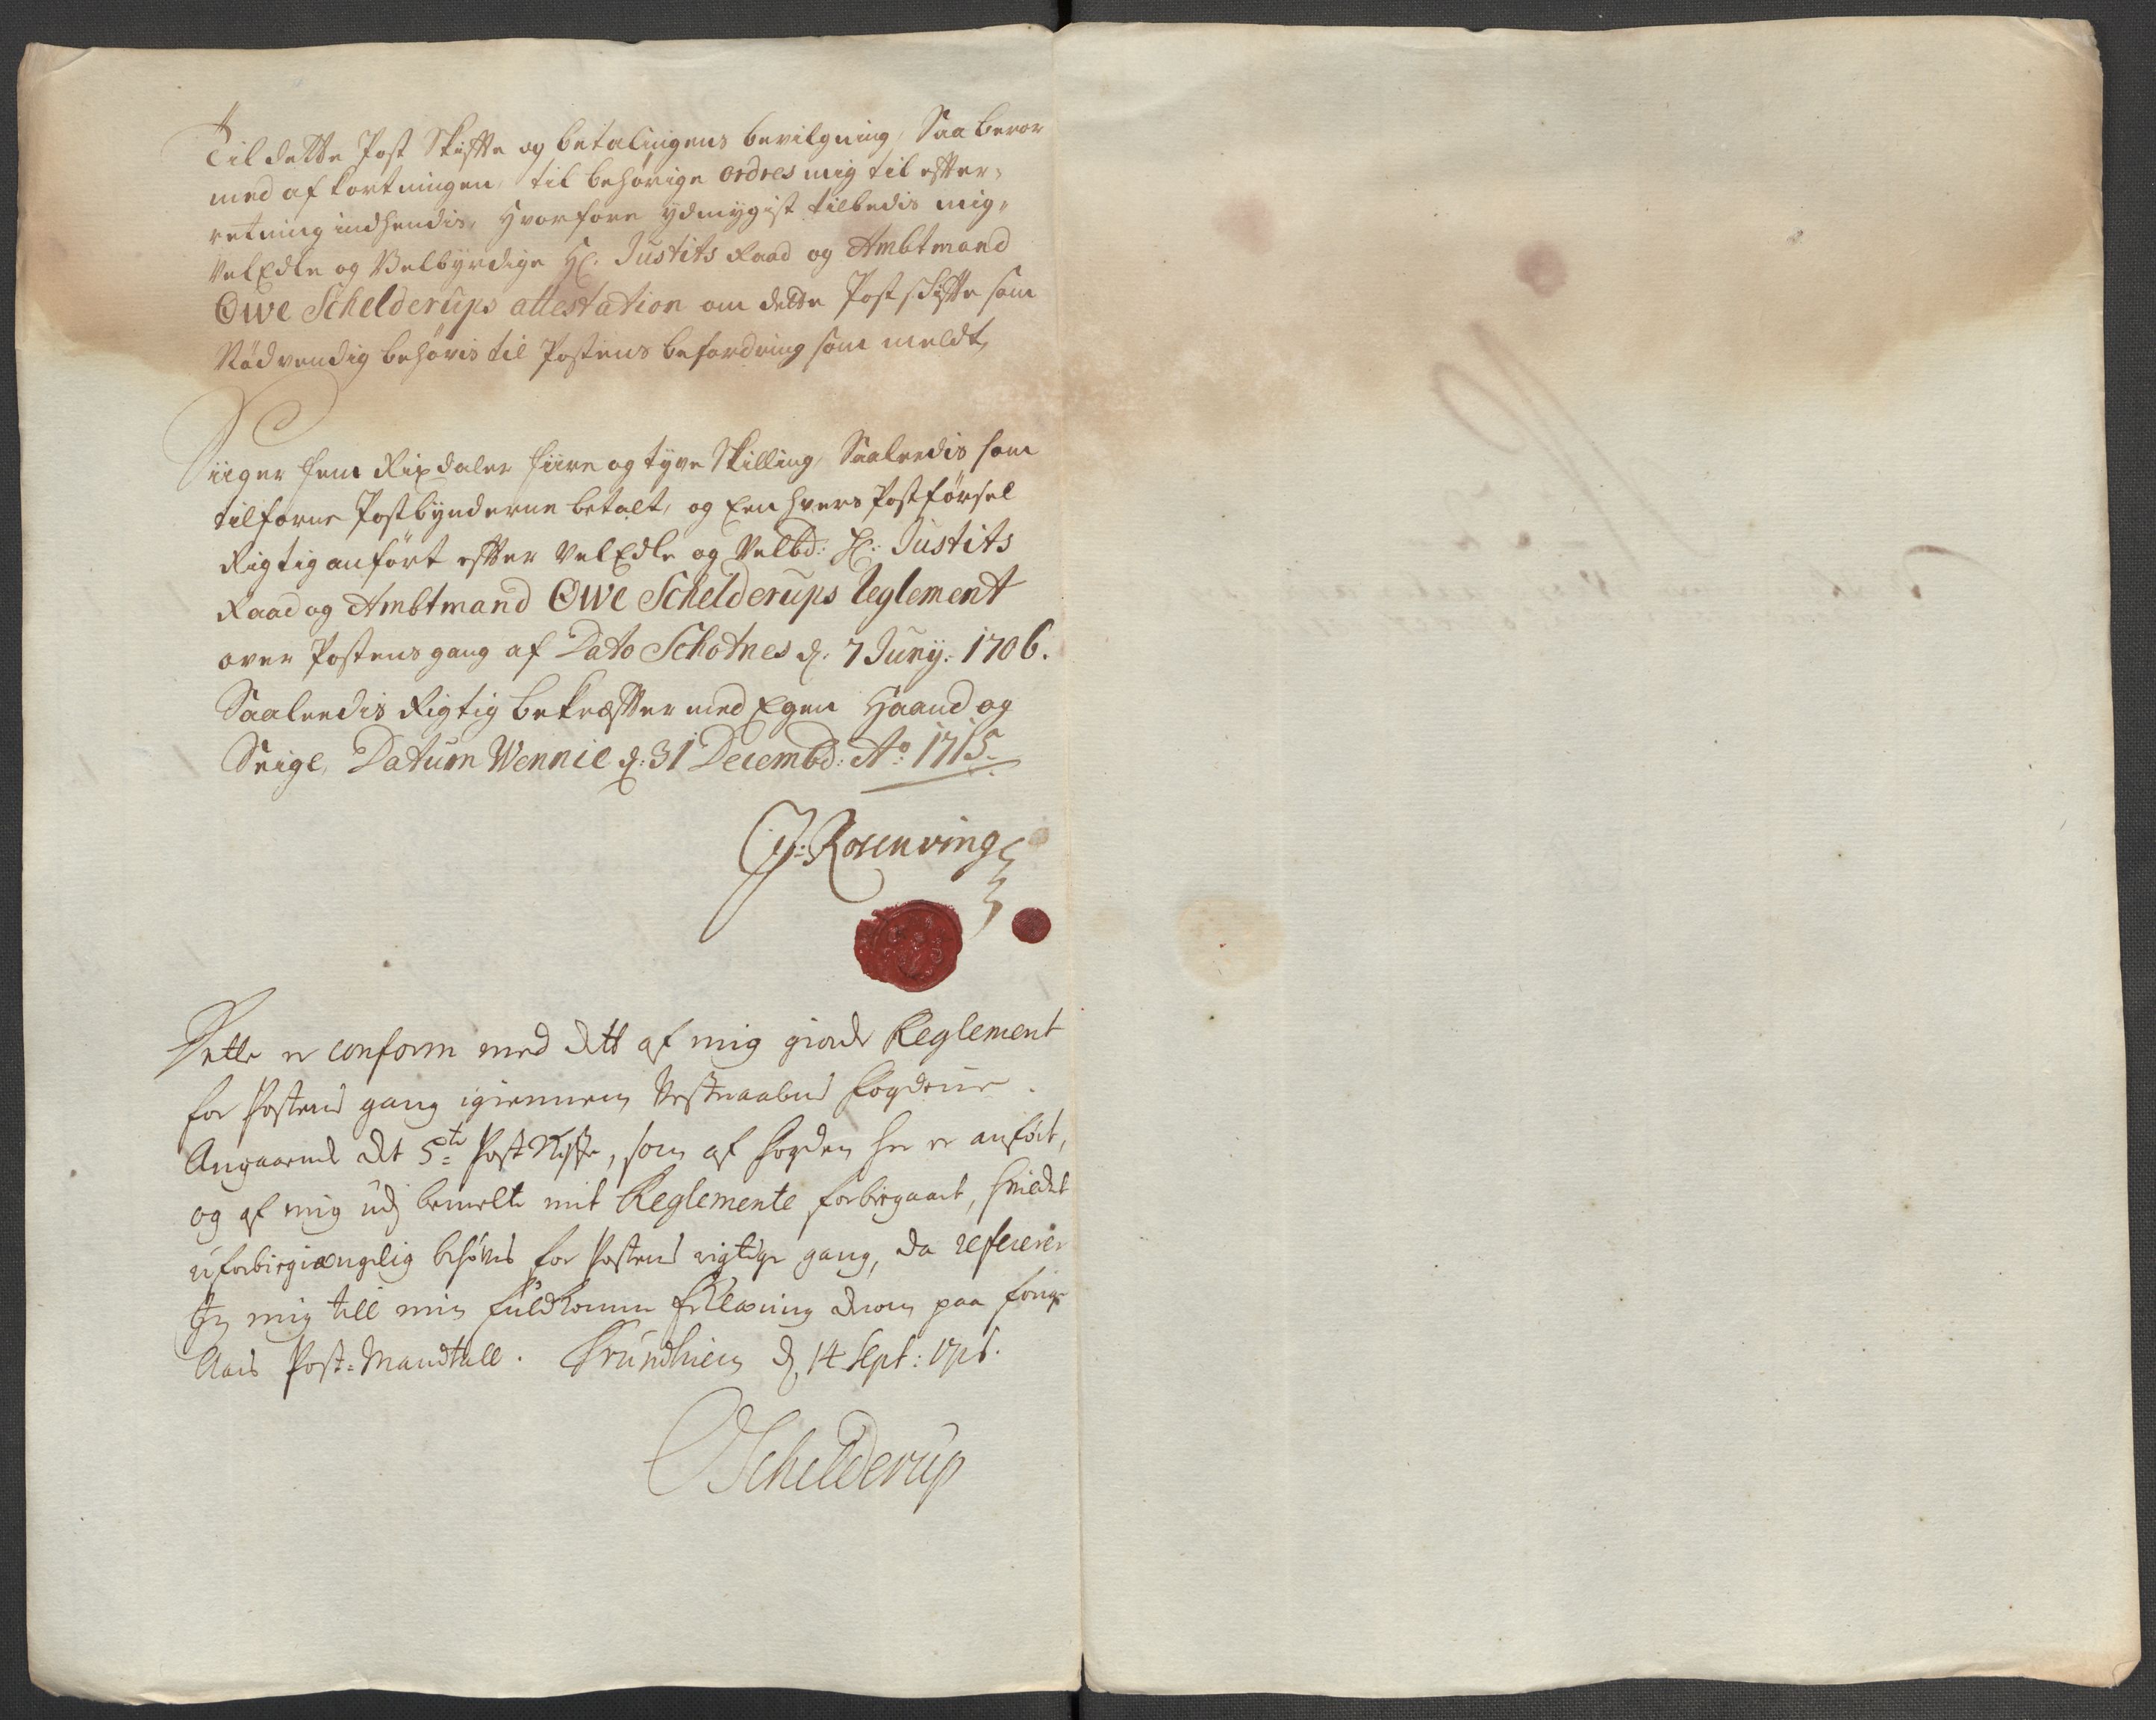 Til dette Post Skiffte og betalingens bevilgning, Saa beror
med afkortningen, til behørige ordres mig til effter-
retning indhendis, Hvorfore ydmygist tilbedis mig,
VelEdle og Velbyrdige Hr. Justits Raad og Ambtmand
Owe Schelderups attestation om dette Post skiffte som
Nødvendig behøvis til Postens befordring som meldt,
Siiger fem Rixdaler fiire og tyve Skilling, Saaledis som
tilforne Postbynderne betalt, og Een hvers Postførsel
Rigtig anført effter VelEdle og Velbd: Hr: Justits
Raad og Ambtmand Owe Schelderups Reglement
over Postens gang af Dato Schotnes d. 7 Juny. 1706.
Saaledis Rigtig bekræffter med Egen Haand og
Seigl, Datum Wennie d: 31 Decembd: Ao 1715.
J: Rosenving
Dette er conform med dett af mig giorde Reglement
for Postens gang igiennem Fogderie.
Angaaende det 5te Post Skiffte, som af Fogden her er anført,
og af mig udj bemelte mit Reglemente forbigaaet, hvilcket
uforbigiængelig behøves for Postens rigtige gang, da refererer
Jeg mig till min fuldkomne Erklæring derom paa forrige
Aars Post-Mandtall. Trundhiem d. 14 Sept: 1716.
OSchelderup